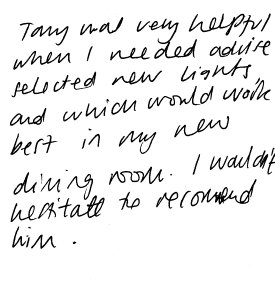 Tony was very helpful
when I needed advise
selected new lights,
and which would work
best in my new
dining room. I wouldn't
hesitate to recommend
him.